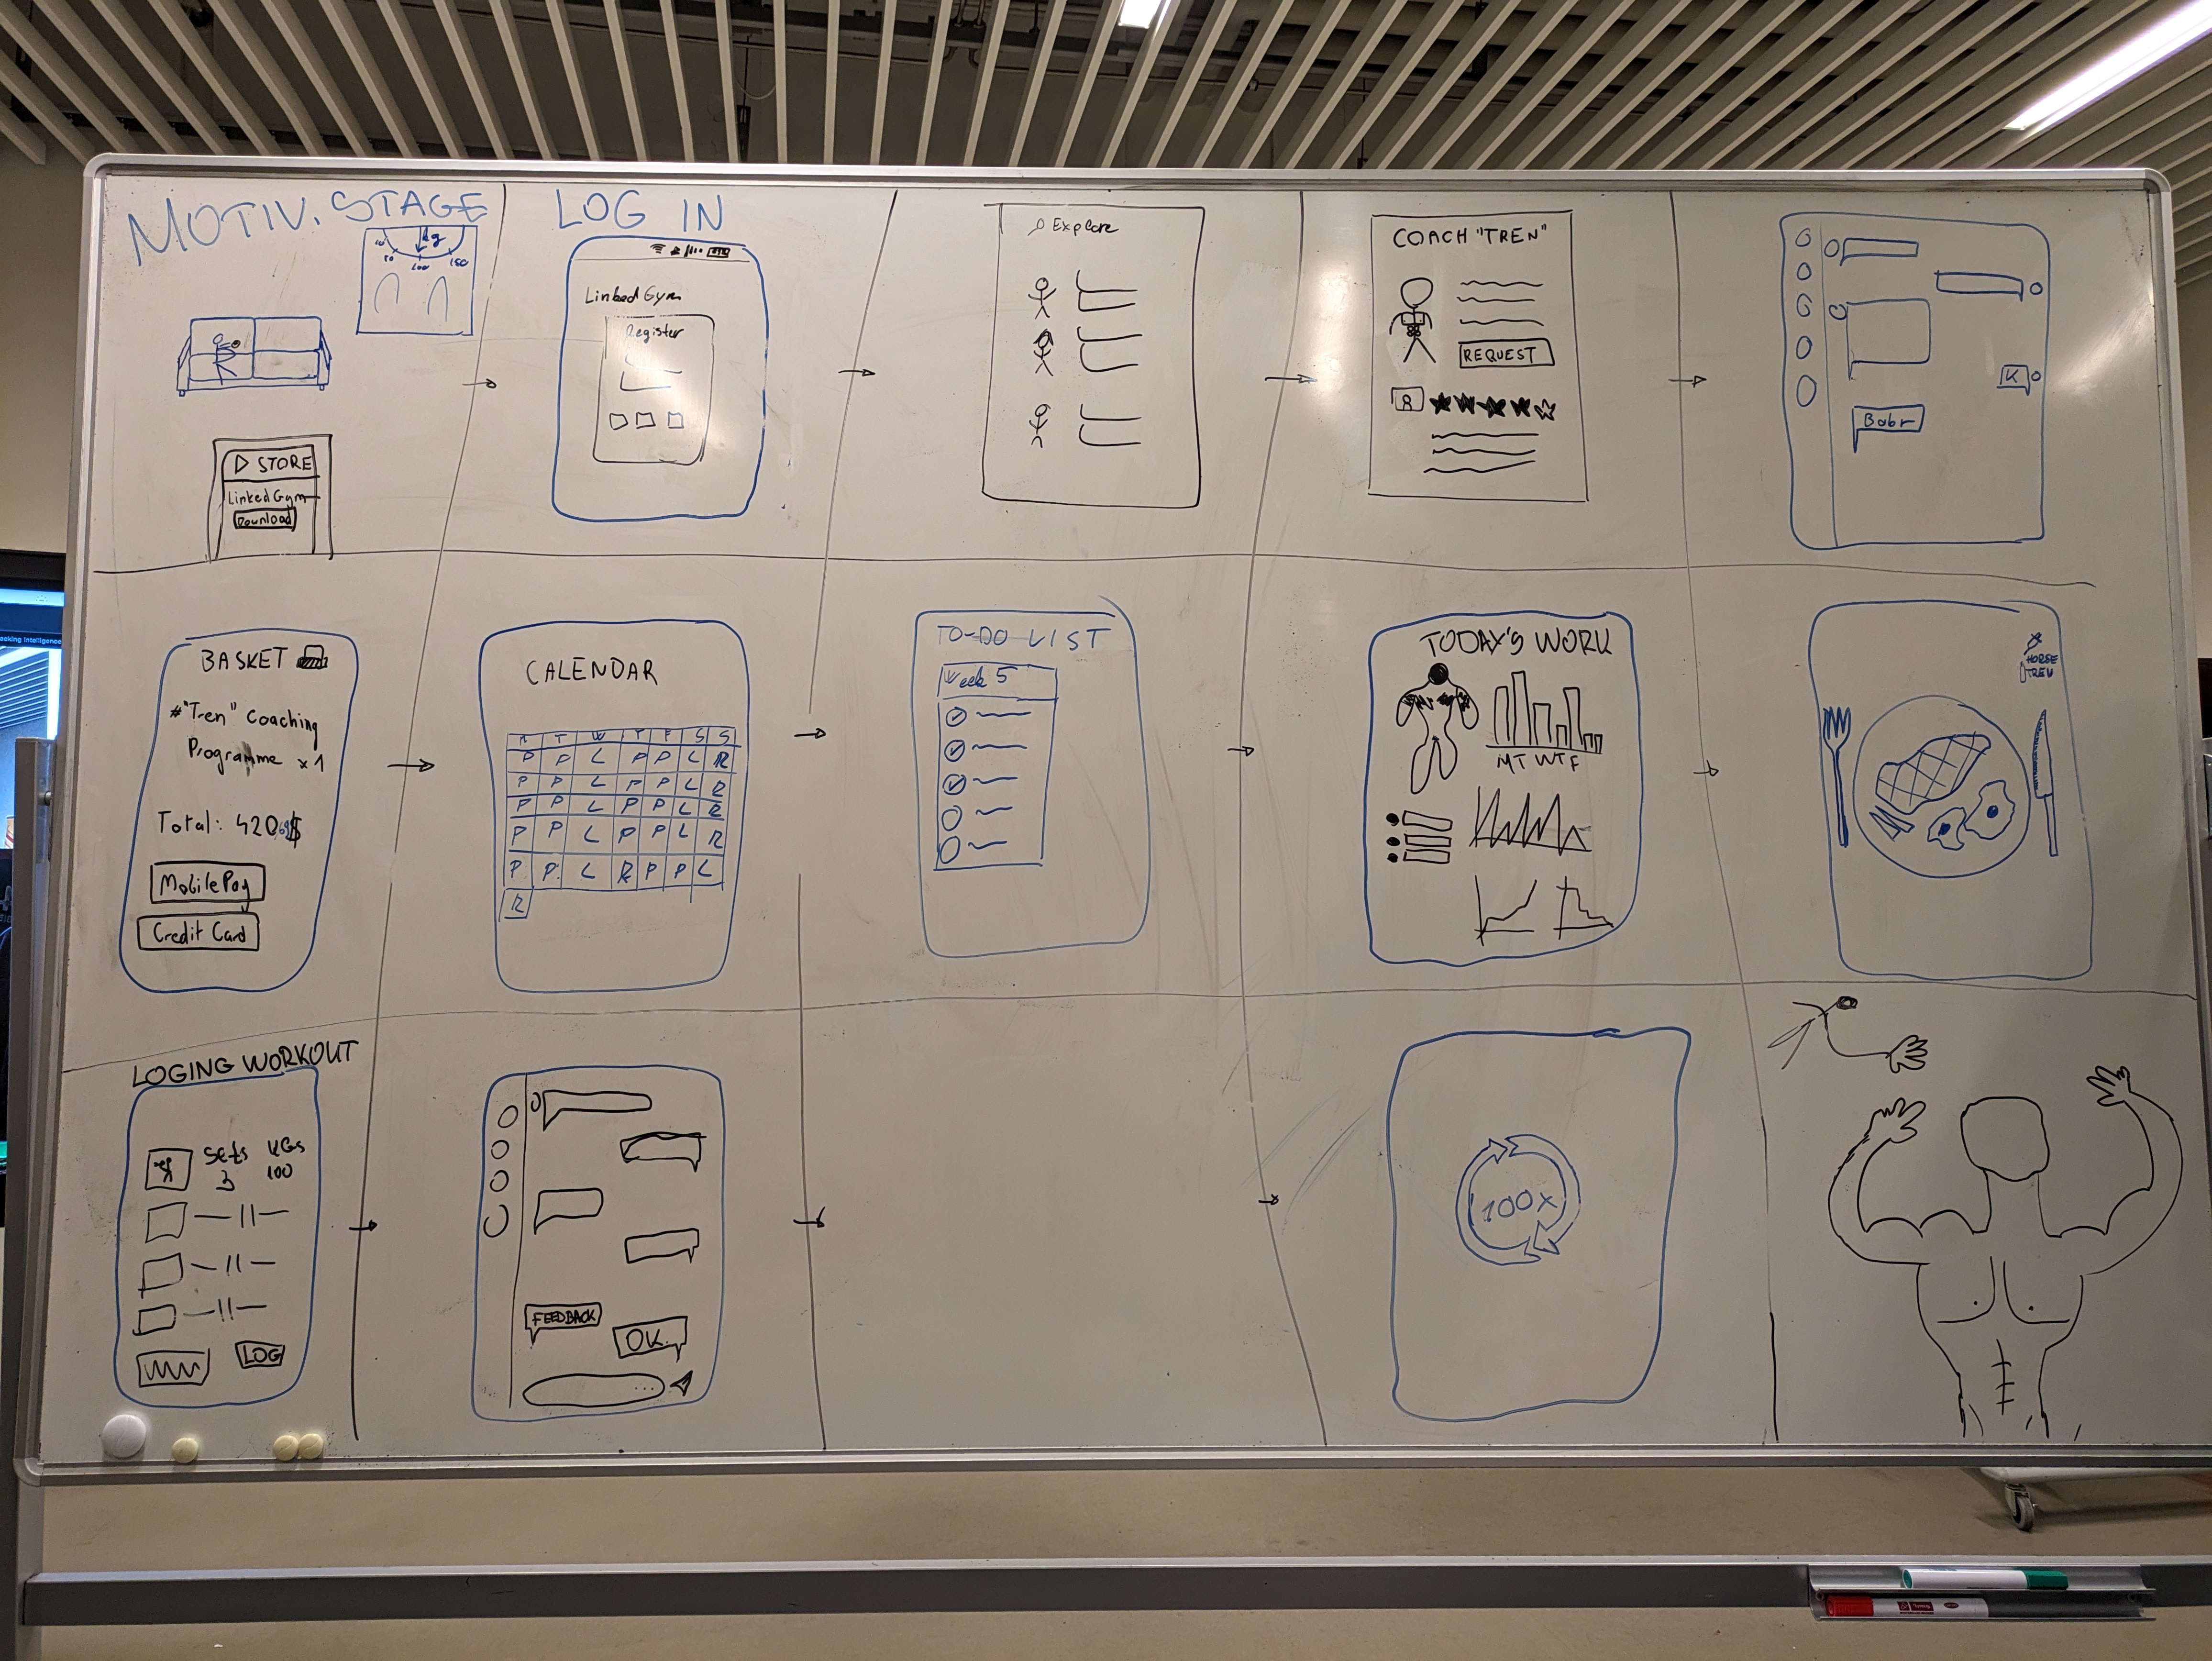 MOTIV. STAGE
kg
50
100
150
STORE
LinkedGym
Download
LOG IN
LinkedGym
Register
Explore
COACH "TREN"
REQUEST
K
Bobr
BASKET
#"Tren" Coaching
Programme x1
Total: 420.69$
MobilePay
Credit Card
CALENDAR
M T W T F S S
P P L P P L R
P P L P P L R
P P L P P L R
P P L P P L R
P P L R P P L
R
TO-DO LIST
Week 5
TODAY'S WORK
M T W T F
HORSE
TREN
LOGING WORKOUT
Sets KGs
3 100
LOG
FEEDBACK
OK.
100x